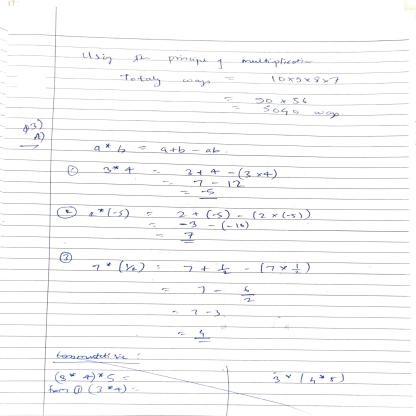 Using the principle of multiplication
Totaly ways = 10×9×8×7
= 90 × 56
= 5040 ways
Q3)
A)
a * b = a+b - ab
① 3*4 = 3+4 - (3×4)
= 7 - 12
= -5
② 2*(-5) = 2 + (-5) - (2×(-5))
= -3 - (-10)
= 7
③ 7*(1/2) = 7 + 1/2 - (7×1/2)
= 7 - 6/2
= 7-3
= 4
(3*4)*5 =
3*(4*5)
from ① (3*4) =